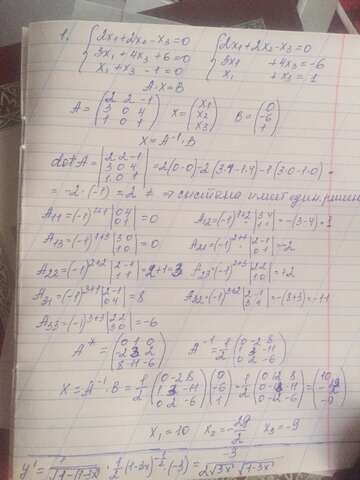 1. { 2x₁+2x₂-x₃=0 { 2x₁+2x₂-x₃=0
3x₁+4x₃+6=0 3x₁ +4x₃=-6
x₁+x₃-1=0 x₁ +x₃=1
A·X=B
A=(2 2 -1; 3 0 4; 1 0 1) X=(x₁; x₂; x₃) B=(0; -6; 1)
X=A⁻¹·B
det A=|2 2 -1; 3 0 4; 1 0 1|=2(0-0)-2(3·1-1·4)-1(3·0-1·0)=
=-2·(-1)=2 ≠ → система имеет един. решен
A₁₁=(-1)¹⁺¹|0 4; 0 1|=0 A₁₂=(-1)¹⁺²|3 4; 1 1|=-(3-4)=1
A₁₃=(-1)¹⁺³|3 0; 1 0|=0 A₂₁=(-1)²⁺¹|2 -1; 0 1|=-2
A₂₂=(-1)²⁺²|2 -1; 1 1|=2+1=3 A₂₃=(-1)²⁺³|2 2; 1 0|=+2
A₃₁=(-1)³⁺¹|2 -1; 0 4|=8 A₃₂=(-1)³⁺²|2 -1; 3 4|=-(8+3)=-11
A₃₃=(-1)³⁺³|2 2; 3 0|=-6
A*=(0 1 0; -2 3 2; 8 -11 -6) A⁻¹=1/2(0 -2 8; 1 3 -11; 0 2 -6)
X=A⁻¹·B=1/2(0 -2 8; 1 3 -11; 0 2 -6)(0; -6; 1)=1/2
x₁=10 x₂=-29/2 x₃=-9